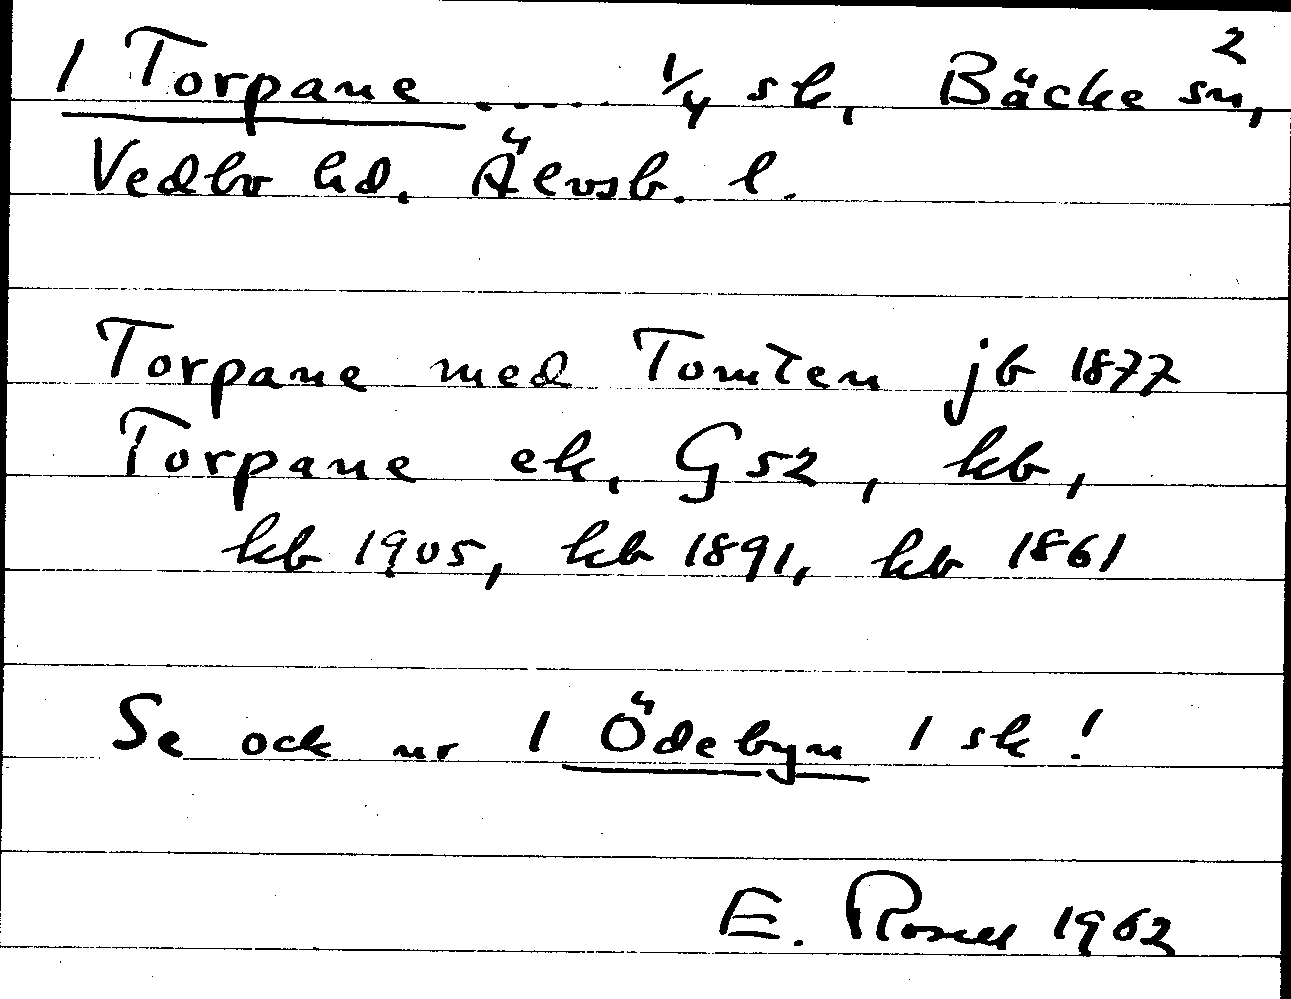 2
1 Torpane ...... 1/4 sk, Bäcke sn,
Vedbo hd. Älvsb. l.
Torpane med Tomten jb 1877
Torpane ek, G52, kb,
kb 1905, kb 1891, kb 1861
Se ock nr 1 Ödebyn 1 sk!
E. Rosell 1962